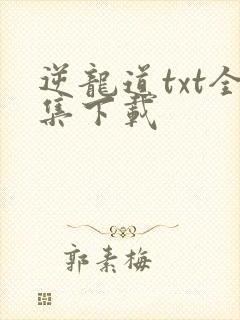 逆龍道txt全
集下載
郭素梅